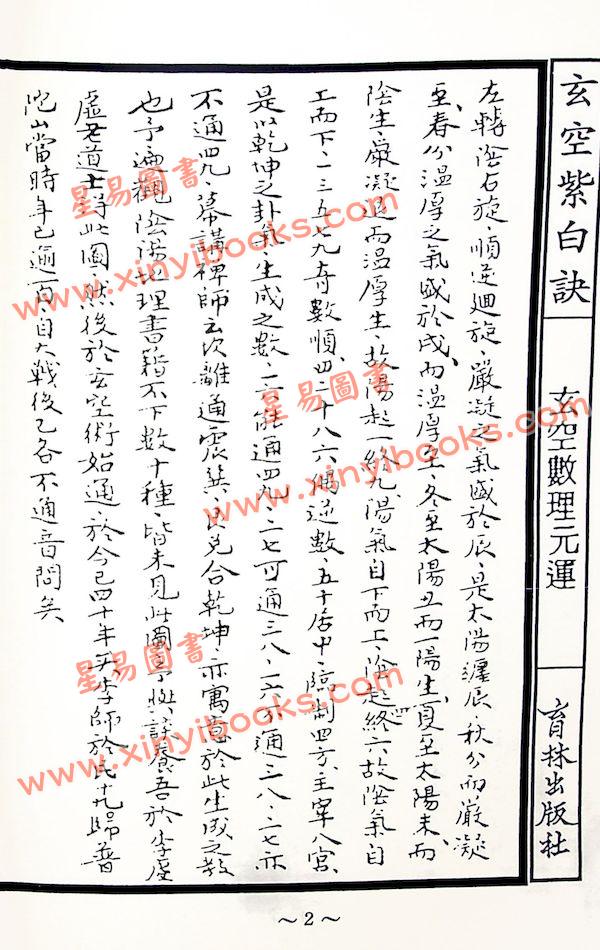 玄空紫白訣
玄空數理元運
育林出版社
左轉陰右旋、順逆廻旋、嚴凝之氣盛於辰、是太陽躔辰、秋分而嚴凝
至、春分溫厚之氣盛於戌、而溫厚至、冬至太陽丑而一陽生、夏至太陽未、而
陰生、嚴凝退而溫厚生、故陽起一終九、陽氣自下而上、陰起四終六故陰氣自
上而下、一三五七九奇數順、四二十八六偶逆數、五十居中、臨制四方、主宰八宮、
是以乾坤之卦氣、生成之數、一六能通四九、二七可通三八、一六不通三八、二七亦
不通四九、幕講禪師云坎離通震巽、艮兌合乾坤、亦寓意於此生成之數
也予遍觀陰陽地理書籍不下數十種、皆未見此圖、談養吾於李虛
虛老道士得此圖、然後於玄空術始通、於今已四十年矣李師於民十九歸普
陀山當時年已逾百、自大戰後已各不通音問矣
星易圖書
www.xinyibooks.com
星易圖書
www.xinyibooks.com
星易圖書
www.xinyibooks.com
～2～